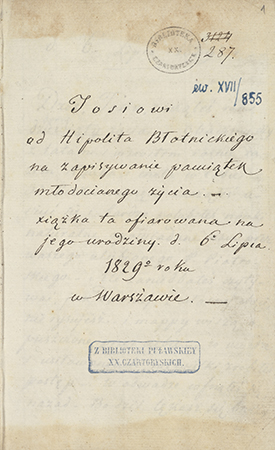 1
BIBLIOTEKA
XX.
CZARTORYSKICH
3124
287.
ew. XVII/855
Josiowi
od Hipolita Błotnickiego
na zapisywanie pamiątek
młodocianego życia. —
xiążka ta ofiarowana na
jego urodziny. d. 6º Lipca
1829º roku
w Warszawie. —
Z BIBLIOTEKI PUŁAWSKIEY
XX. CZARTORYSKICH.